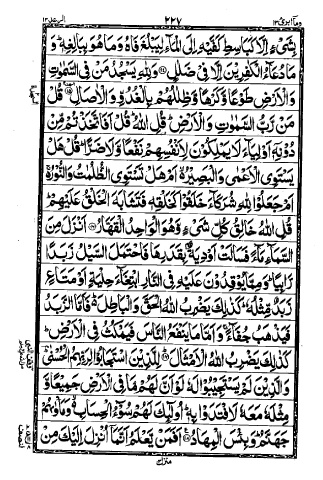 وما ابرئ ١٣ ٢٢٧ الرعد ١٣
بِشَىْءٍ اِلَّا كَبَاسِطِ كَفَّيْهِ اِلَى الْمَآءِ لِيَبْلُغَ فَاهُ وَمَا هُوَ بِبَالِغِهٖ ؕ وَ
مَا دُعَآءُ الْكٰفِرِيْنَ اِلَّا فِىْ ضَلٰلٍ ۞ وَلِلّٰهِ يَسْجُدُ مَنْ فِى السَّمٰوٰتِ
وَالْاَرْضِ طَوْعًا وَّكَرْهًا وَّظِلٰلُهُمْ بِالْغُدُوِّ وَالْاٰصَالِ ۞ قُلْ
مَنْ رَّبُّ السَّمٰوٰتِ وَالْاَرْضِ ؕ قُلِ اللّٰهُ ؕ قُلْ اَفَاتَّخَذْتُمْ مِّنْ
دُوْنِهٖۤ اَوْلِيَآءَ لَا يَمْلِكُوْنَ لِاَنْفُسِهِمْ نَفْعًا وَّلَا ضَرًّا ؕ قُلْ هَلْ
يَسْتَوِى الْاَعْمٰى وَالْبَصِيْرُ ۙ اَمْ هَلْ تَسْتَوِى الظُّلُمٰتُ وَالنُّوْرُ ۚ
اَمْ جَعَلُوْا لِلّٰهِ شُرَكَآءَ خَلَقُوْا كَخَلْقِهٖ فَتَشَابَهَ الْخَلْقُ عَلَيْهِمْ ؕ
قُلِ اللّٰهُ خَالِقُ كُلِّ شَىْءٍ وَّهُوَ الْوَاحِدُ الْقَهَّارُ ۞ اَنْزَلَ مِنَ
السَّمَآءِ مَآءً فَسَالَتْ اَوْدِيَةٌۢ بِقَدَرِهَا فَاحْتَمَلَ السَّيْلُ زَبَدًا
رَّابِيًا ؕ وَمِمَّا يُوْقِدُوْنَ عَلَيْهِ فِى النَّارِ ابْتِغَآءَ حِلْيَةٍ اَوْ مَتَاعٍ
زَبَدٌ مِّثْلُهٗ ؕ كَذٰلِكَ يَضْرِبُ اللّٰهُ الْحَقَّ وَالْبَاطِلَ ؕ فَاَمَّا الزَّبَدُ
فَيَذْهَبُ جُفَآءً ۚ وَاَمَّا مَا يَنْفَعُ النَّاسَ فَيَمْكُثُ فِى الْاَرْضِ ؕ
كَذٰلِكَ يَضْرِبُ اللّٰهُ الْاَمْثَالَ ۞ لِلَّذِيْنَ اسْتَجَابُوْا لِرَبِّهِمُ الْحُسْنٰى ؕ
وَالَّذِيْنَ لَمْ يَسْتَجِيْبُوْا لَهٗ لَوْ اَنَّ لَهُمْ مَّا فِى الْاَرْضِ جَمِيْعًا وَّ
مِثْلَهٗ مَعَهٗ لَافْتَدَوْا بِهٖ ؕ اُولٰٓئِكَ لَهُمْ سُوْٓءُ الْحِسَابِ ۙ وَمَاْوٰىهُمْ
جَهَنَّمُ ؕ وَبِئْسَ الْمِهَادُ ۞ اَفَمَنْ يَّعْلَمُ اَنَّمَاۤ اُنْزِلَ اِلَيْكَ مِنْ
منزل